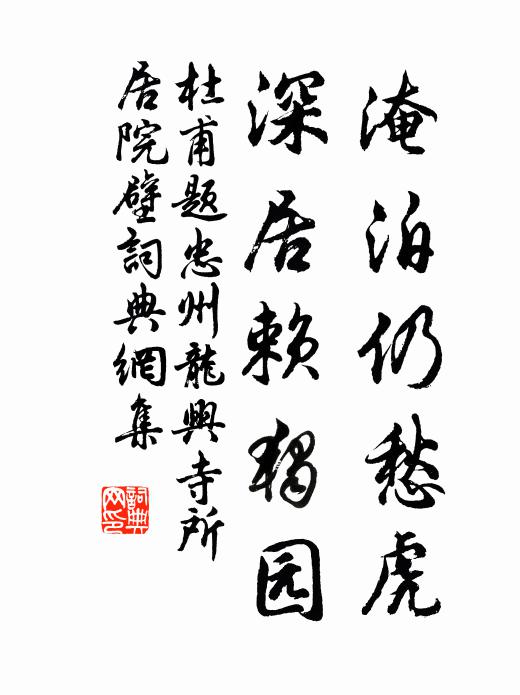 淹泊仍愁虎
深居赖独园
杜甫题忠州龍興寺所
居院壁詞典網集
詞典
网印